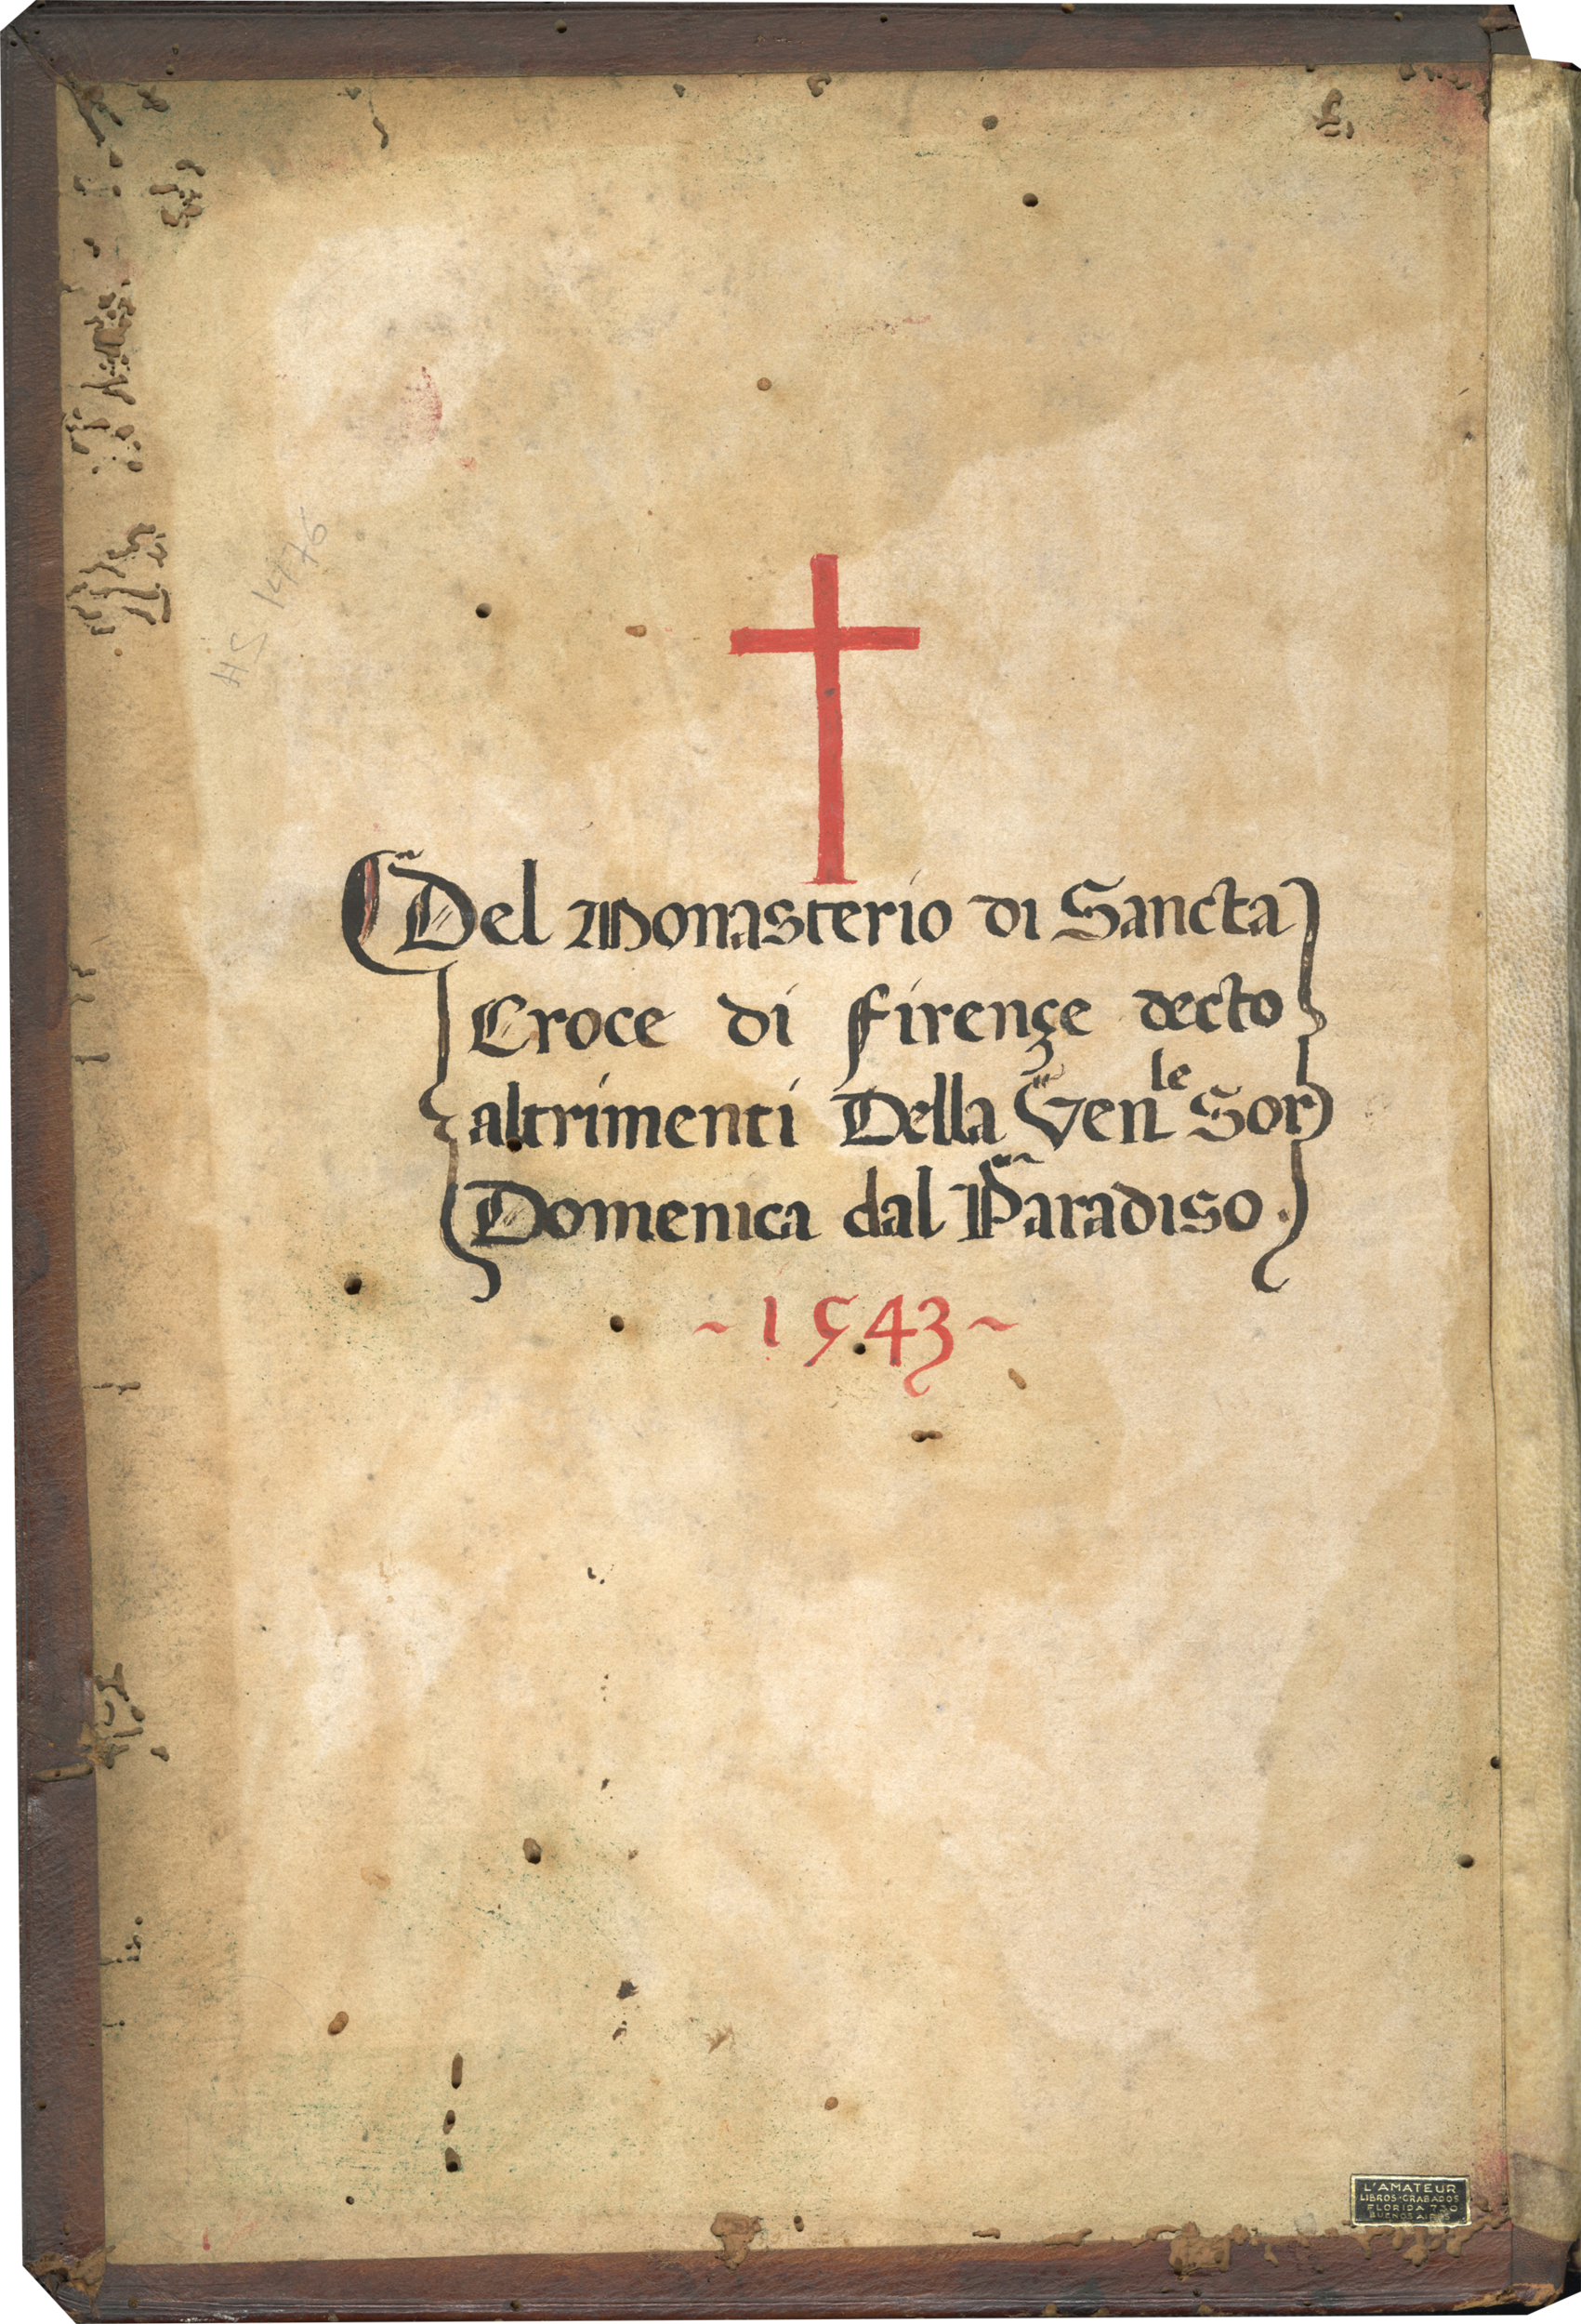 HS 1476
Del Monasterio di Sancta
Croce di Firençe decto
altrimenti Della Ven^le Sor
Domenica dal Paradiso.
~1543~
L'AMATEUR
LIBROS·GRABADOS
FLORIDA
BUENOS AIRES